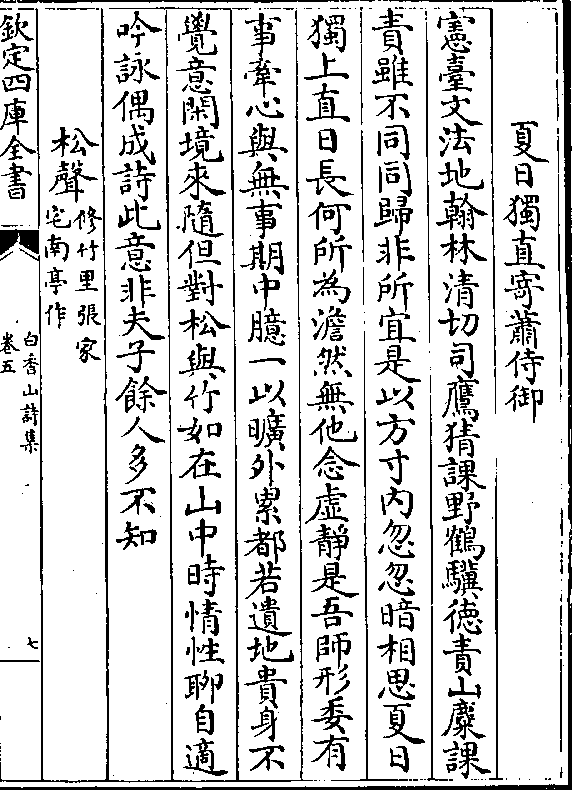 夏日獨直寄蕭侍御
憲臺文法地翰林清切司鷹猜課野鶴驥德責山麋課
責雖不同同歸非所宜是以方寸內忽忽暗相思夏日
獨上直日長何所為澹然無他念虛靜是吾師形委有
事牽心與無事期中臆一以曠外累都若遺地貴身不
覺意閑境來隨但對松與竹如在山中時情性聊自適
吟詠偶成詩此意非夫子餘人多不知
松聲修竹里張家
宅南亭作
欽定四庫全書
白香山詩集
卷五
七